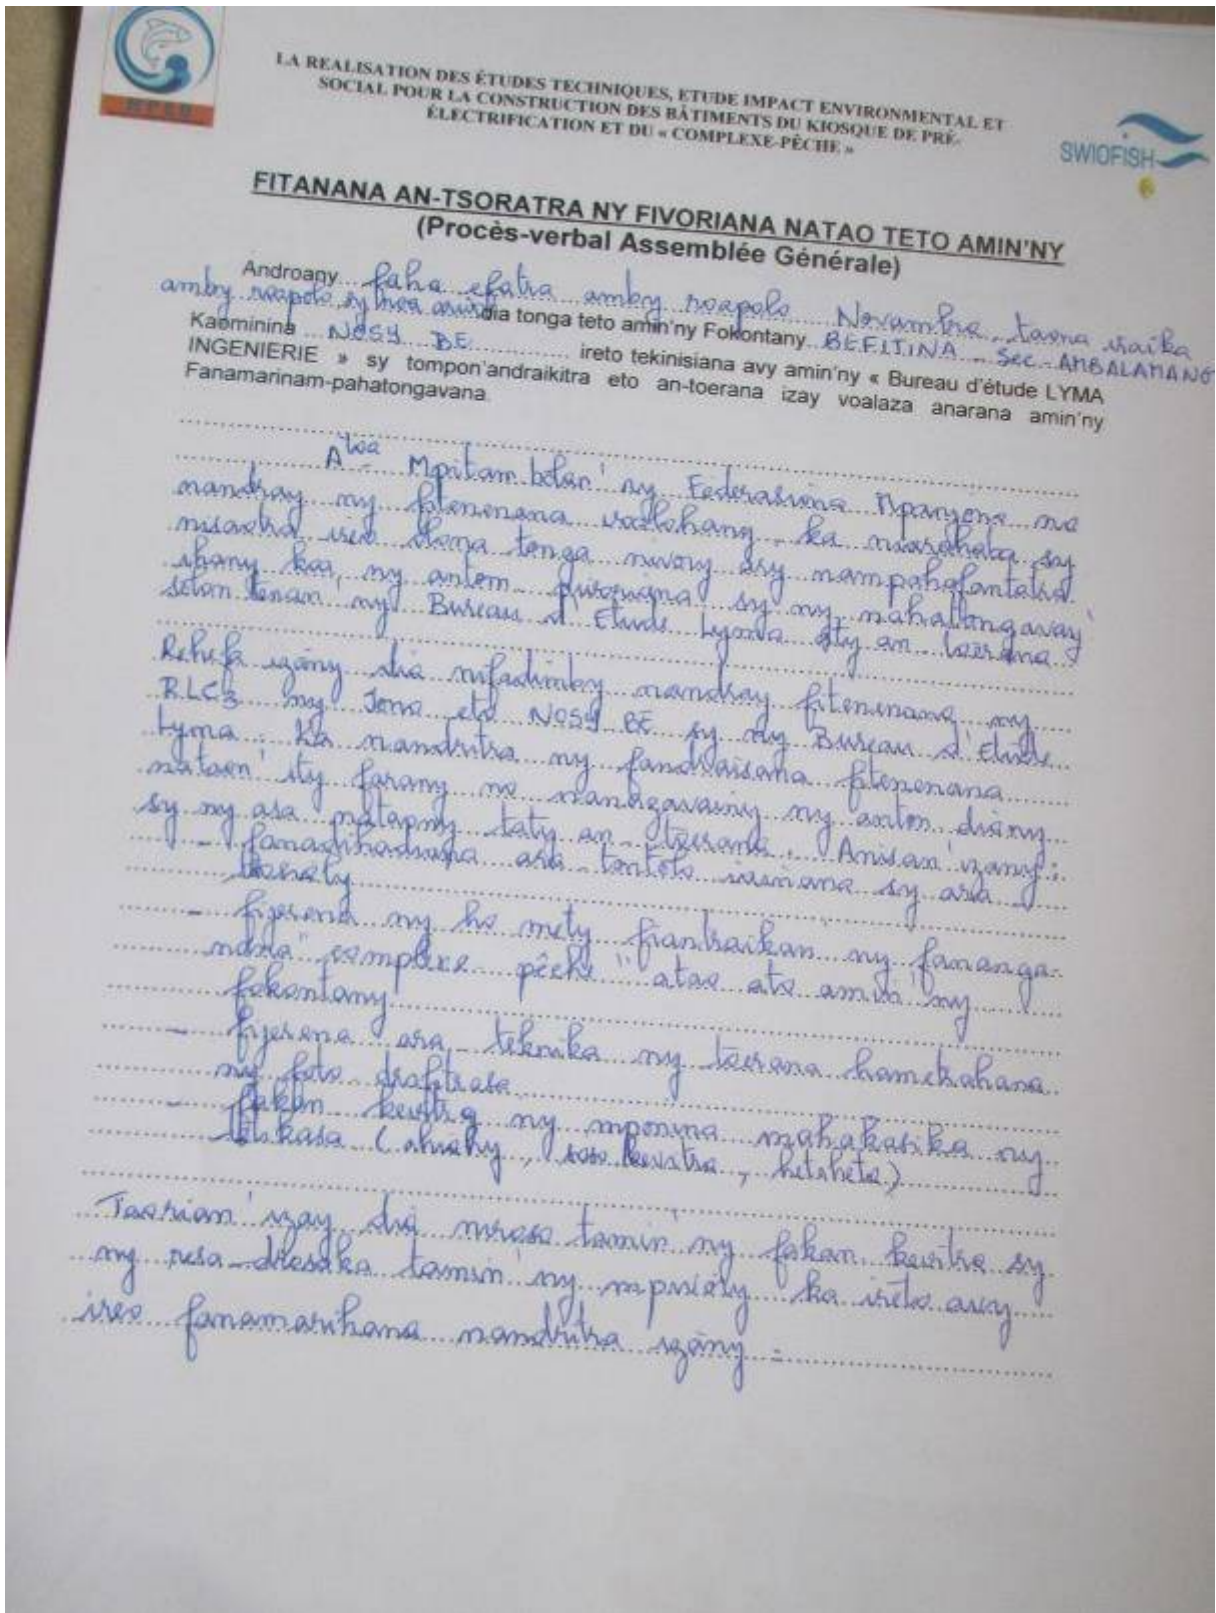 LA REALISATION DES ÉTUDES TECHNIQUES, ETUDE IMPACT ENVIRONMENTAL ET
SOCIAL POUR LA CONSTRUCTION DES BÂTIMENTS DU KIOSQUE DE PRÉ-
ÉLECTRIFICATION ET DU « COMPLEXE-PÊCHE »
SWIOFISH
FITANANA AN-TSORATRA NY FIVORIANA NATAO TETO AMIN'NY
(Procès-verbal Assemblée Générale)
Androany faha efatra amby roapolo Novambra, taona iraika
amby roapolo sy roa arivo dia tonga teto amin'ny Fokontany BEFITINA Sec. AMBALAMANG
Kaominina NOSY BE ireto tekinisiana avy amin'ny « Bureau d'étude LYMA
INGENIERIE » sy tompon'andraikitra eto an-toerana izay voalaza anarana amin'ny
Fanamarinam-pahatongavana.
Atoa Mpitam bolan' ny Federasiona Mpanjono no
nandray ny fitenenana voalohany ka niarahaba sy
nisaotra ireo olona tonga nivory ary nampahafantatra
ihany koa, ny anton fivoriana sy ny nahatongavay
solon tenan' ny Bureau d'Etude Lyma aty an toerana
Rehefa izany dia nifadimby nandray fitenenana ny
RLC3 ny Jono eto NOSY BE sy ny Bureau d'Etude
Lyma. ka nandritra ny fandraisana fitenenana
nataon' ity farany no nanazavainy ny anton diany
sy ny asa nataony taty an toerana. Anisan' izany:
- fanadihadiana ara tontolo iainana sy ara
tsoaly
- fijerena ny ho mety fiantraikan' ny fananga-
nana "complexe pêche" atao ato amin' ny
fokontany
- fijerena ara teknika ny toerana hametrahana
ny foto drafitrasa
- fakan kevitra ny mponina mahakasika ny
tetikasa (ahiahy, soso kevitra, hetaheta)
Taorian' izay dia niroso tamin' ny fakan kevitra sy
ny resa-dresaka tamin' ny mpivory ka ireto avy
ireo fanamarihana nandritra izany :